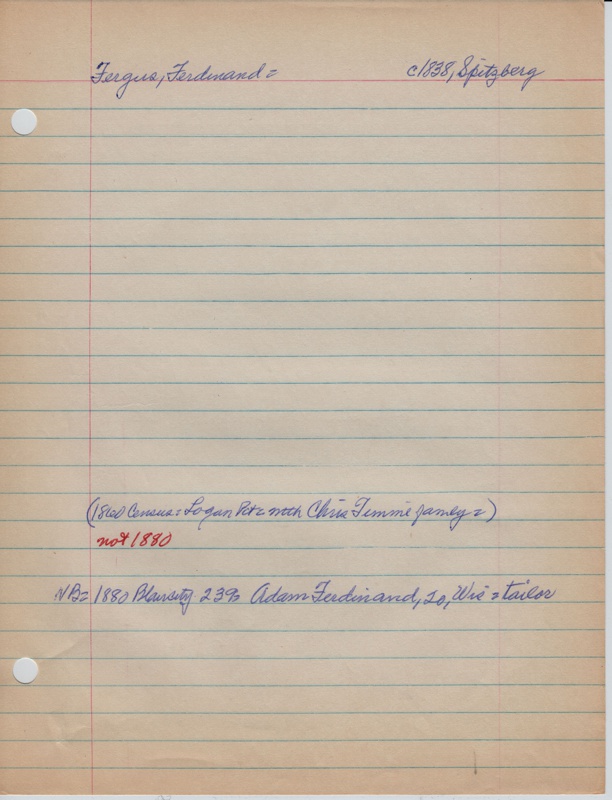 Fergus, Ferdinand = c1838, Spitzberg
(1860 Census: Logan Pct = with Chris Timme famly = )
not 1880
NB = 1880 Blair city 239 = Adam Ferdinand, 20, Wis = tailor